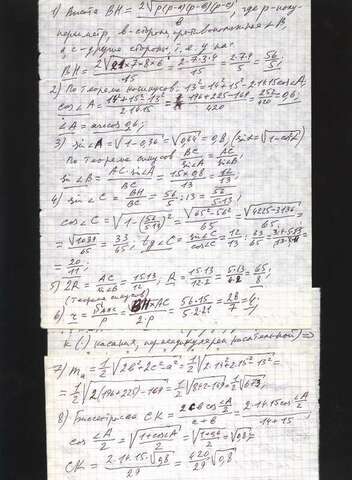 1) Высота BH = 2√p(p-a)(p-b)(p-c), где p-полу-
периметр, b-сторона противоположная ∠B,
a, c - другие стороны, т.е. у нас:
BH = 2√21×7×8×6 / 15 = 2·7·3·4 / 15 = 2·7·4 / 5 = 56/5;
2) По теореме косинусов: 13² = 14²+15²-2·14·15cos∠A;
cos∠A = 14²+15²-13² / 2·14·15 = 196+225-169 / 420 = 252/420 = 0,6;
∠A = arccos 0,6;
3) sin∠A = √1-0,36 = √0,64 = 0,8 (sin∠ = √1-cos²∠)
По теореме синусов BC/sin∠A = AC/sin∠B;
sin∠B = AC·sin∠A / BC = 15×0,8 / 13 = 12/13;
4) sin∠C = BH/BC = 56/5 : 13 = 56/5·13;
cos∠C = √1-(56/5·13)² = √65²-56² / 65 = √4225-3136 / 65 =
= √1089 / 65 = 33/65;
20/11;
5) 2R = AC/sin∠B = 15·13/12; R = 15·13/12·2 = 5·13/4·2 = 65/8;
(теорема синусов)
6) r = = BH×AC / 2·p = 56·15 / 5·2·21 = 28/7 = 4;
К () касания, перпендикулярен касательной) ⇒
7) m = 1/2 √2b²+2c²-a² = 1/2 √2·14²+2·15²-13² =
= 1/2 √2(196+225)-169 = 1/2 √842-169 = 1/2 √673;
8) Биссектриса CK = 2cb cos∠A/2 / c+b = 2·14·15 cos∠A/2 / 14+15;
cos ∠A/2 = √1+cos∠A / 2 = √1+0,6 / 2 = √0,8;
CK = 2·14·15·√0,8 / 29 = 420/29 √0,8